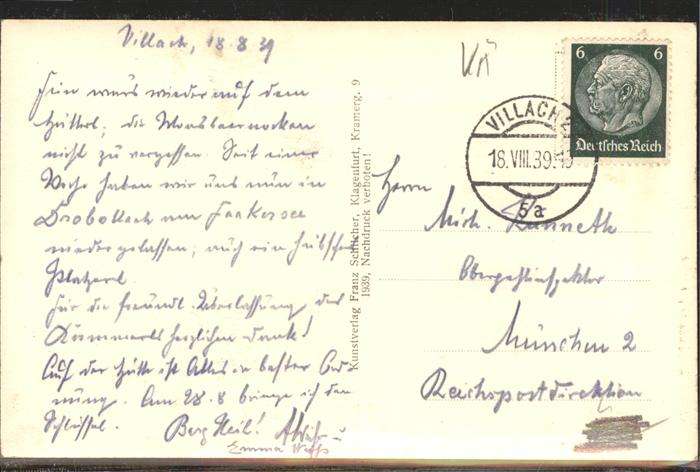 Villach, 18.8.39
Fein war's wieder auf dem
Hütterl, die Moosbeernocken
nicht zu vergessen. Seit einer
Woche haben wir uns nun in
Drobollach am Faakersee
niedergelassen, auch ein hübsches
Platzerl.
Für die freundl. Überlassung des
Kammerls herzlichen Dank!
Auf der Hütte ist Alles in bester Ord-
nung. Am 28.8 bringe ich den
Schlüssel.
Berg Heil!
Emma
Kunstverlag Franz Schilcher, Klagenfurt, Kramerg. 9
1939, Nachdruck verboten!
6 6
Deutsches Reich
VILLACH 2
18.VIII.39.
5a
Herrn
Mich.
Oberpostinspektor
München 2
Reichspostdirektion